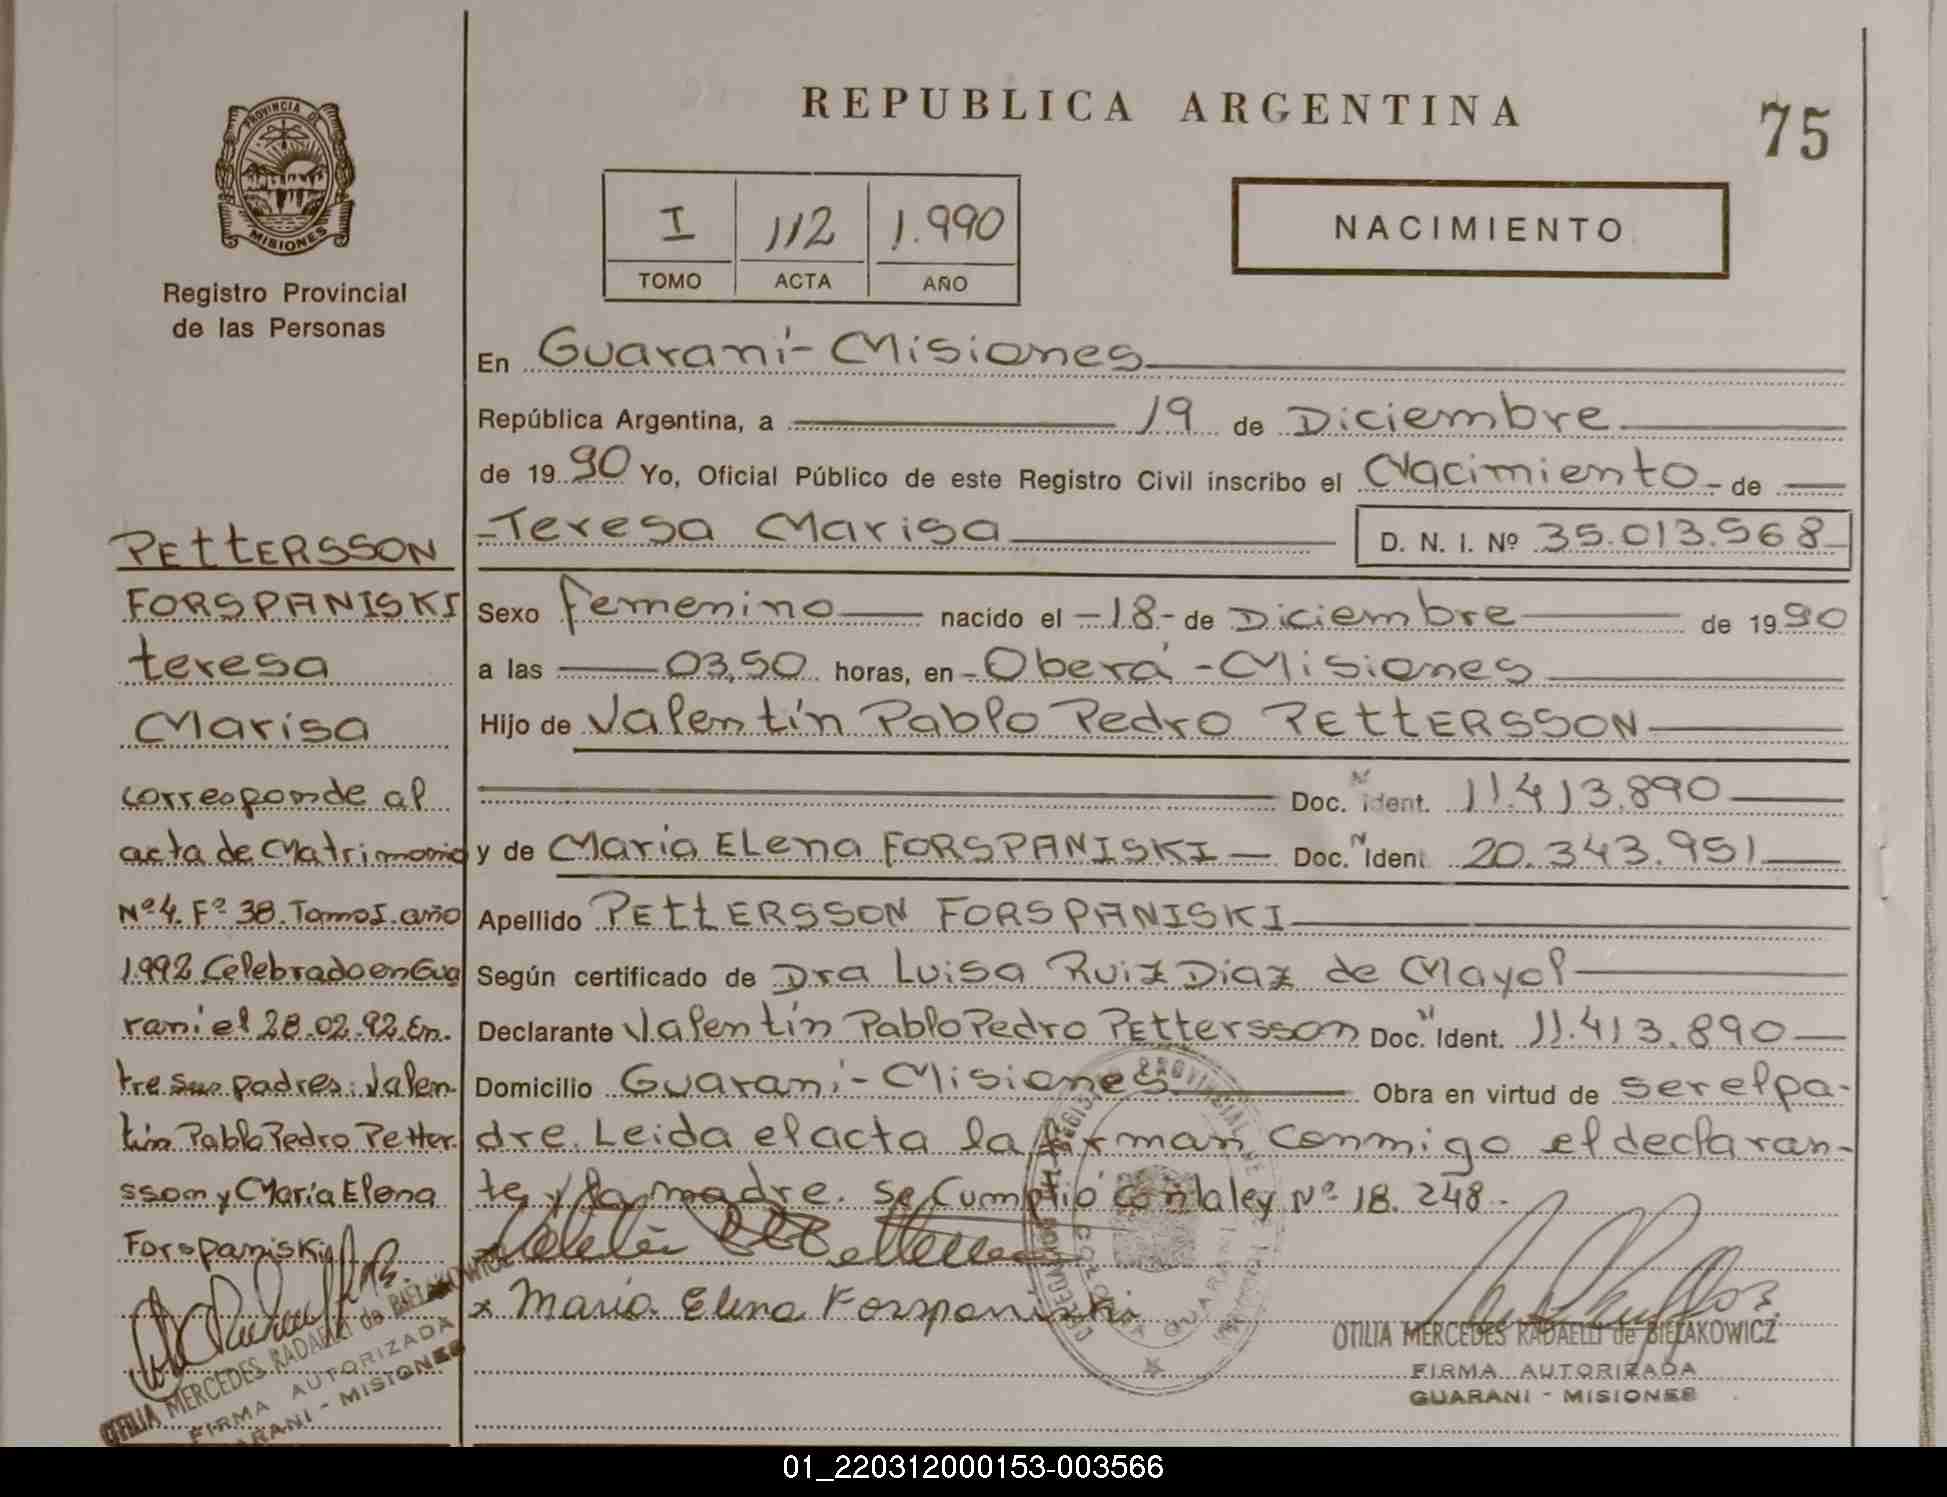 REPUBLICA ARGENTINA
75
PROVINCIA DE
MISIONES
Registro Provincial
de las Personas
I 112 1.990
TOMO ACTA AÑO
NACIMIENTO
En Guaraní-Misiones
República Argentina, a 19 de Diciembre
de 19 90 Yo, Oficial Público de este Registro Civil inscribo el Nacimiento - de
-Teresa Marisa D. N. I. Nº 35.013.568
Sexo femenino nacido el -18- de Diciembre de 19 90
a las 03,50 horas, en - Oberá - Misiones
Hijo de Valentín Pablo Pedro PEttERSSON
Doc. N ident. 11.413.890
y de María ELena FORSPANISKI Doc. N Ident. 20.343.951
Apellido PEttERSSON FORSPANISKI
Según certificado de Dra Luisa Ruiz Diaz de Mayol
Declarante Valentín Pablo Pedro PEttersson Doc. N Ident. 11.413.890
Domicilio Guaraní-Misiones Obra en virtud de ser el pa-
dre. Leida el acta la firman conmigo el declaran-
te y la madre. Se Cumplió con la ley Nº 18.248-
x Maria Elena Forspaniski
OTILIA MERCEDES RADAELLI de BIELAKOWICZ
FIRMA AUTORIZADA
GUARANI - MISIONES
PEttERSSON
FORSPANISKI
teresa
Marisa
corresponde al
acta de Matrimonio
Nº 4. Fº 38. Tomo I. año
1.992 Celebrado en Gua
raní el 28.02.92.En.
tre sus padres: Valen-
tín Pablo Pedro Petter.
sson y María Elena
Forspaniski
OTILIA MERCEDES RADAELLI de BIELAKOWICZ
FIRMA AUTORIZADA
GUARANI - MISIONES
01_220312000153-003566